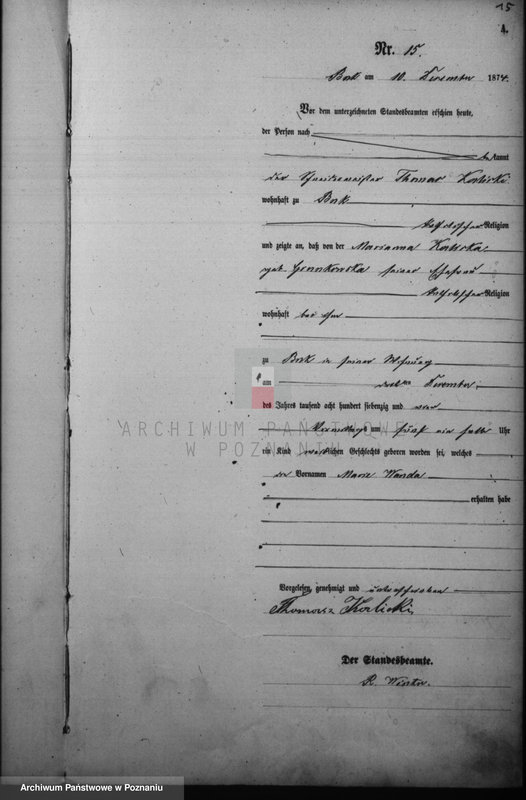 15
A.
Nr. 15.
Buk am 10. Dezember 1874.
Vor dem unterzeichneten Standesbeamten erschien heute,
der Person nach
bekannt
der Schneidermeister Thomas
wohnhaft zu Buk
katholischer Religion
und zeigte an, daß von der Marianna
geb. seiner Ehefrau
katholischer Religion
wohnhaft bei ihm
zu Buk in seiner Wohnung
am Dezember
des Jahres tausend acht hundert siebenzig und vier
Vormittags um fünf ein halb Uhr
ein Kind weiblichen Geschlechts geboren worden sei, welches
die Vornamen Maria Wanda
erhalten habe
Vorgelesen, genehmigt und unterschrieben
Thomasz
Der Standesbeamte.
R. Winter.
ARCHIWUM PAŃSTWOWE
W POZNANIU
Archiwum Państwowe w Poznaniu